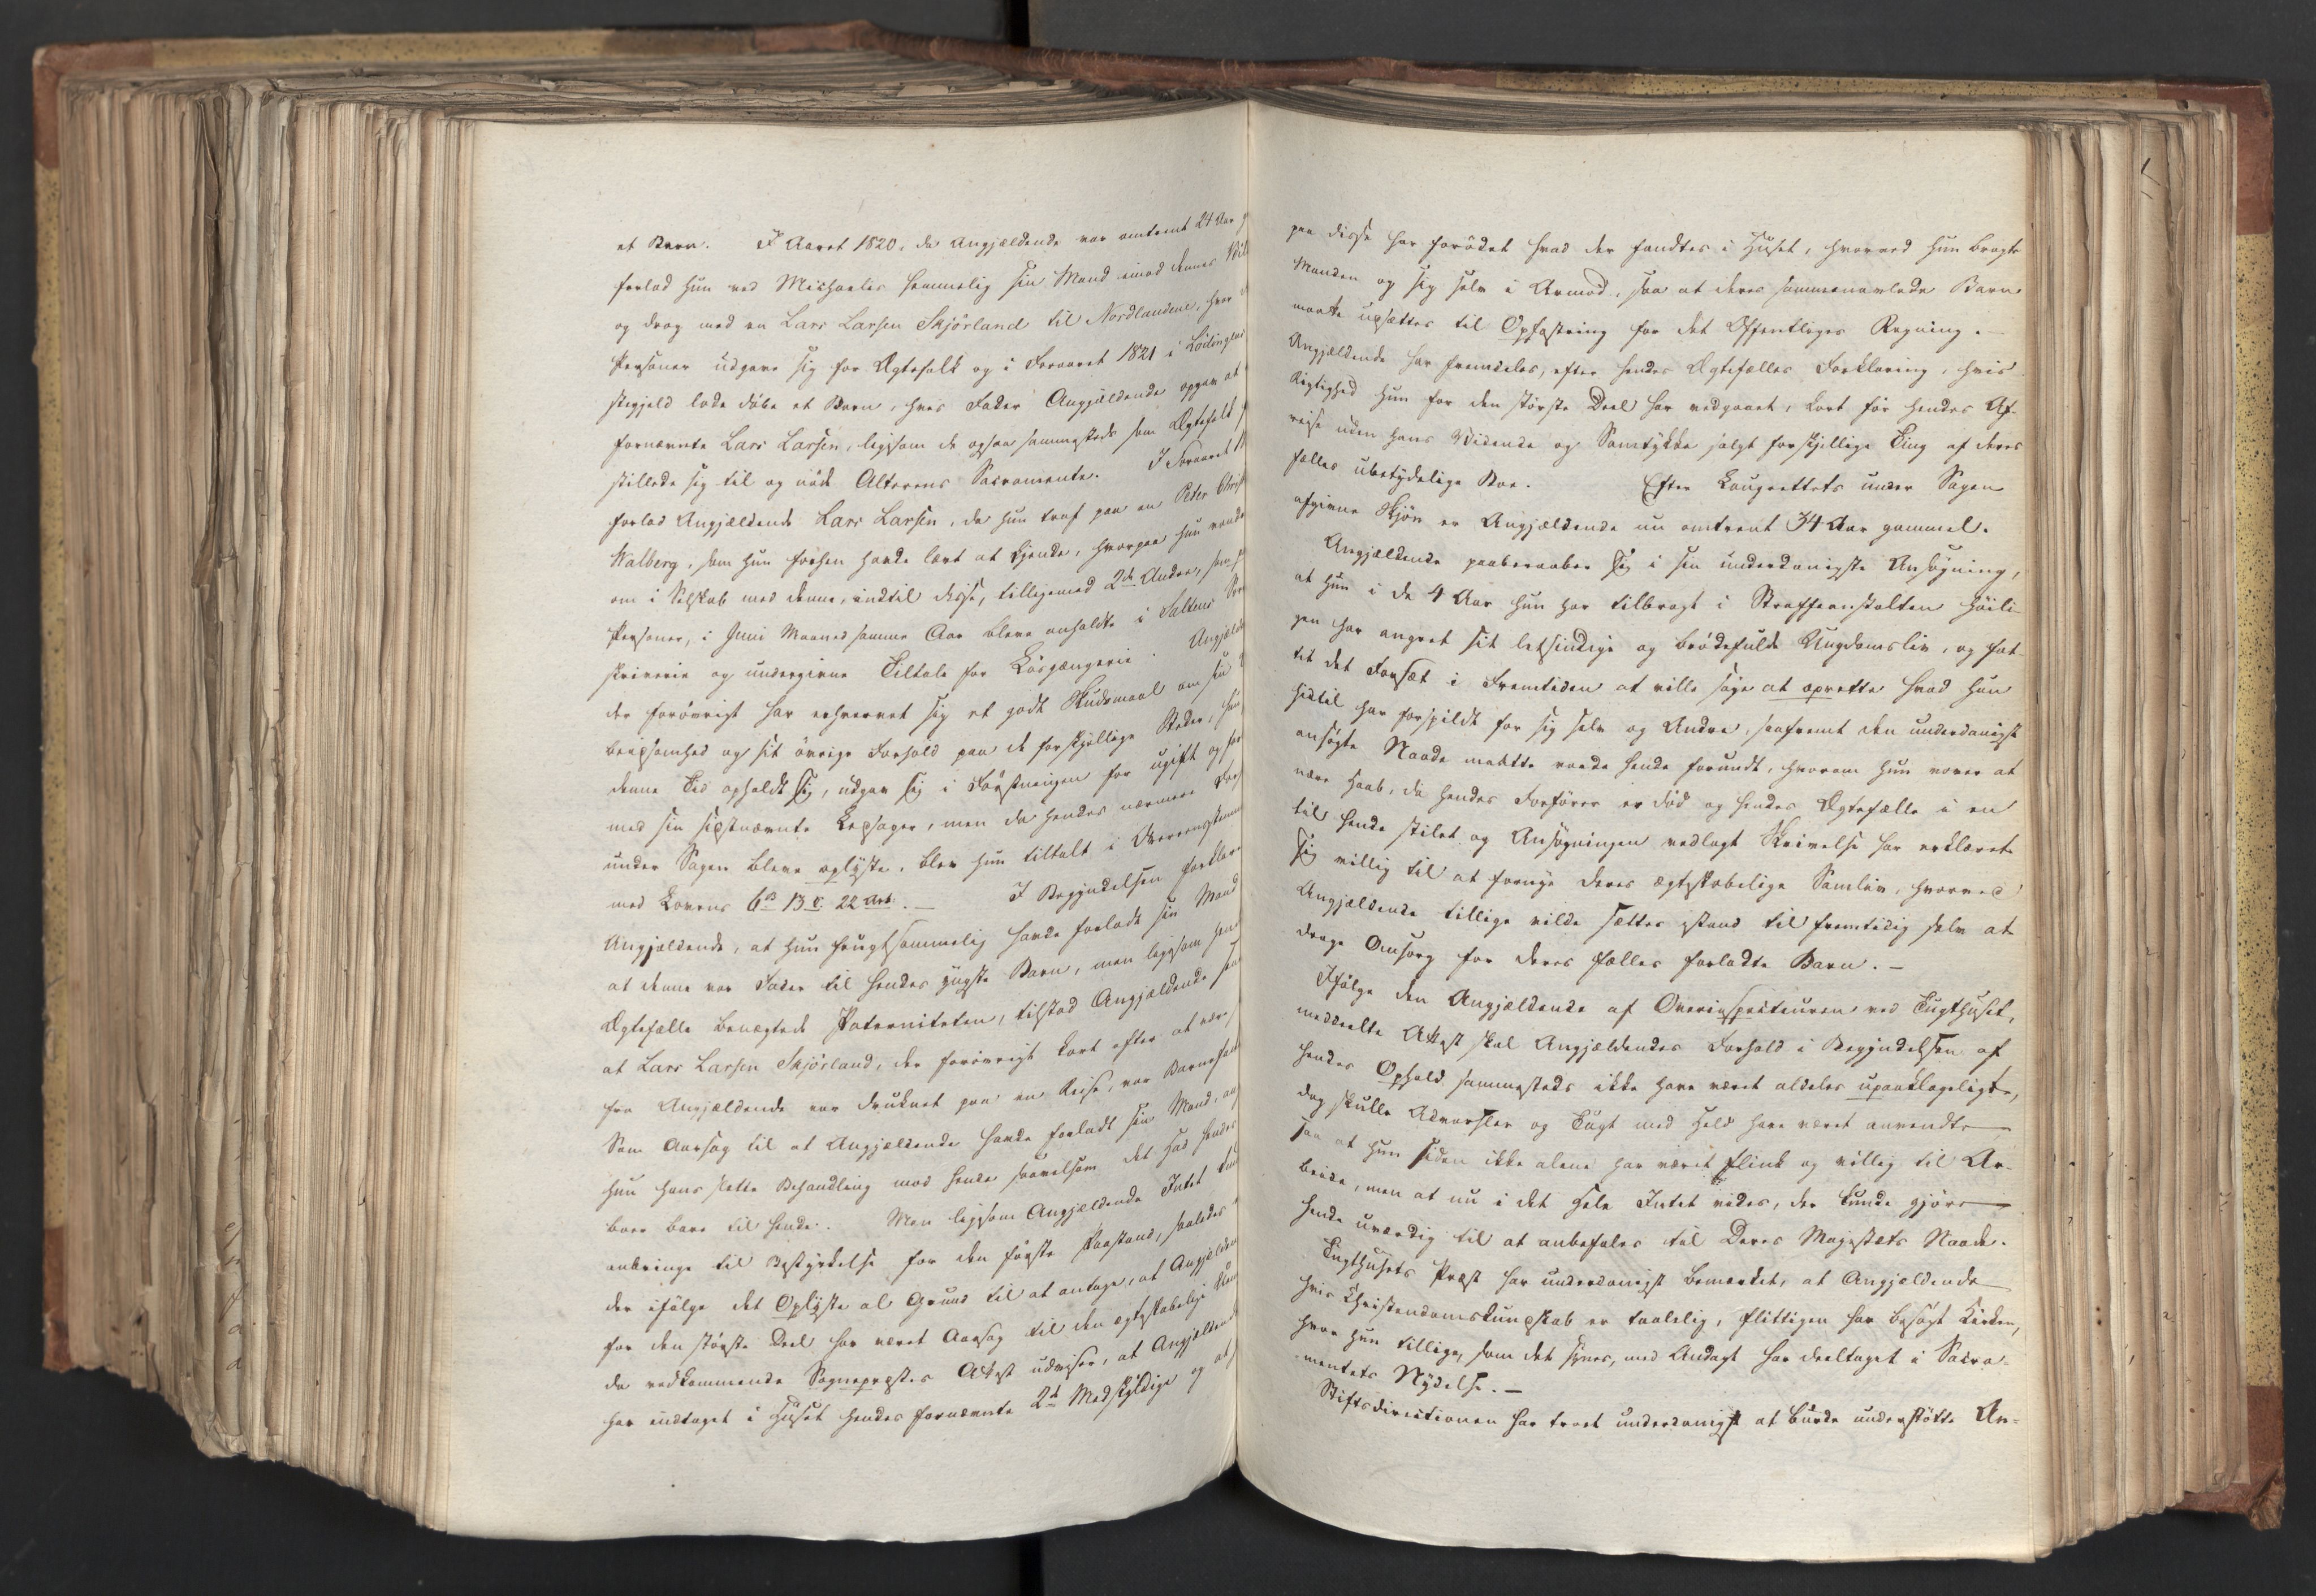 et Barn. I Aaret 1820, da Angjældende var omtrent 24 Aar
forlod hun ved Michaelis hemmelig sin Mand imod dennes
og drog med en Lars Larsen Skjörland til Nordlandene, hvor
Personer udgave sig for Ægtefolk og i Foraaret 1821 i Lödingens
stegjeld lode döbe et Barn, hvis Fader Angjældende opgav at
fornævnte Lars Larsen, ligesom de ogsaa sammesteds som Ægtefolk
stillede sig til og nöde Alterens Sacramente. I Foraaret
forlod Angjældende Lars Larsen, da hun traf paa en Peter
Walberg, som hun forhen havde lært at kjende, hvorpaa hun vandr
om i Selskab med denne, indtil disse, tilligemed 2de Andre,
Personer, i Juni Maaned samme Aar bleve anholdte i Saltens
skriverie og undergivne Tiltale for Lösgængerie. Angjælde
der forövrigt har erhvervet sig et godt Skudsmaal om sin
beidsomhed og sit övrige Forhold paa de forskjellige Steder, hun
denne Tid opholdt sig, udgav sig i Förstningen for ugift og
med sin sidstnævnte Ledsager, men da hendes nærmere
under Sagen bleve oplyste, blev hun tiltalt i Overeensstemm
med Lovens 6B 13C 22 Art. — I Begyndelsen forklar
Angjældende, at hun frugtsommelig havde forladt sin Mand
at denne var Fader til hendes yngste Barn, men ligesom hen
Ægtefælle benægtede Paterniteten, tilstod Angjældende
at Lars Larsen Skjörland, der forövrigt kort efter at være
fra Angjældende var druknet paa en Reise, var Barnefad
Som Aarsag til at Angjældende havde forladt sin Mand,
hun hans slette Behandling mod hende saavelsom det Had hendes
boer bare til hende. Men ligesom Angjældende Intet
anbringe til Bestyrkelse for den förste Paastand, saaledes
der ifölge det Oplyste al Grund til at antage, at Angjælden
for den störste Deel har været Aarsag til den ægteskabelige
da vedkommende Sognepræstes Attest udviser, at Angjældend
har indtaget i Huset hendes fornævnte 2de Medskyldige og at
paa disse har forödet hvad der fandtes i Huset, hvorved hun bragte
Manden og sig selv i Armod, saa at deres sammenavlede Barn
maatte udsættes til Opfostring for det Offentliges Regning. —
Angjældende har fremdeles, efter hendes Ægtefælles Forklaring, hvis
Rigtighed hun for den störste Deel har vedgaaet, kort för hendes Af-
reise uden hans Vidende og Samtykke solgt forskjellige Ting af deres
fælles ubetydelige Boe. Efter Laugrettets under Sagen
afgivne Skjön er Angjældende nu omtrent 34 Aar gammel.
Angjældende paaberaaber sig i sin underdanigste Ansögning,
at hun i de 4 Aar hun har tilbragt i Straffeanstalten höili-
gen har angret sit letsindige og brödefulde Ungdomsliv, og fat-
tet det Forsæt i Fremtiden at ville söge at oprette hvad hun
hidtil har forspildt for sig selv og Andre, saafremt den underdanigst
ansögte Naade maatte vorde hende forundt, hvorom hun vover at
nære Haab, da hendes Forförer er död og hendes Ægtefælle i en
til hende stilet og Ansögningen vedlagt Skrivelse har erklæret
sig villig til at fornye deres ægteskabelige Samliv, hvorved
Angjældende tillige vilde sættes istand til fremtidig selv at
drage Omsorg for deres fælles forladte Barn. —
Ifölge den Angjældende af Overinspecteuren ved Tugthuset,
meddeelte Attest skal Angjældendes Forhold i Begyndelsen af
hendes Ophold sammesteds ikke have været aldeles upaaklageligt,
dog skulle Advarsler og Tugt med Held have været anvendte
saa at hun siden ikke alene har været flink og villig til Ar-
beide, men at nu i det Hele Intet vides, der kunde gjöre
hende uværdig til at anbefales til Deres Majestæts Naade.
Tugthusets Præst har underdanigst bemærket, at Angjældende
hvis Christendomskundskab er taalelig, flittigen har besögt Kirken,
hvor hun tillige, som det synes, med Andagt har deeltaget i Sacra-
mentets Nydelse. —
Stiftsdirectionen har troet underdanigst at burde understötte An-